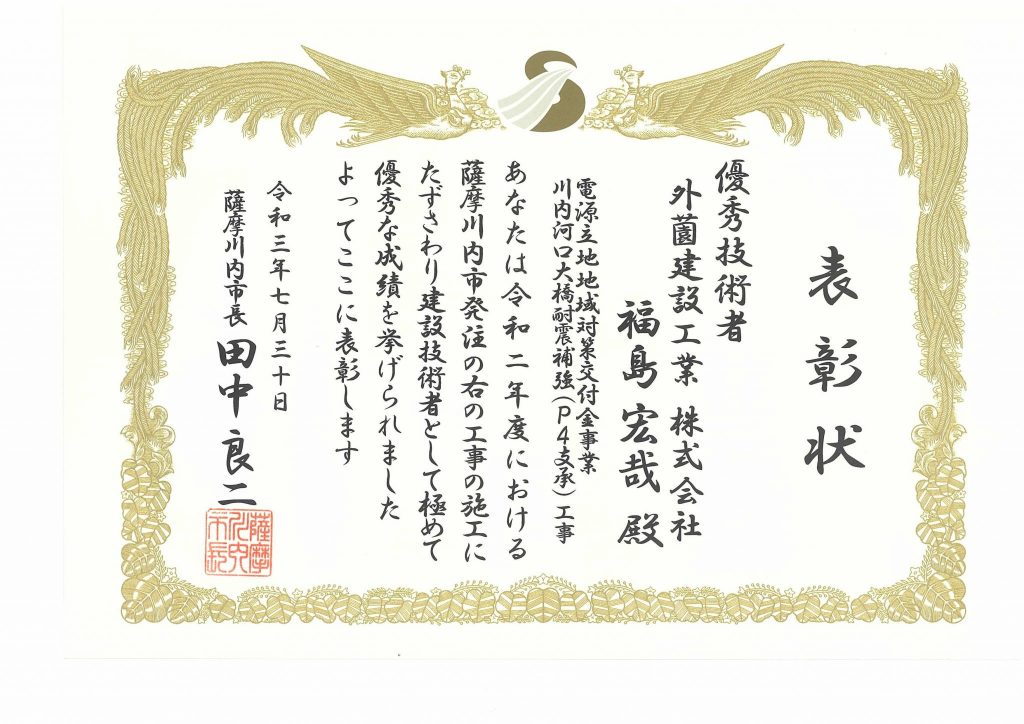 表彰状
優秀技術者
外薗建設工業 株式会社
福島 宏哉 殿
電源立地地域対策交付金事業
川内河口大橋耐震補強(P4支承)工事
あなたは令和二年度における
薩摩川内市発注の右の工事の施工に
たずさわり建設技術者として極めて
優秀な成績を挙げられました
よってここに表彰します
令和三年七月三十日
薩摩川内市長 田中 良二
薩摩川内市長